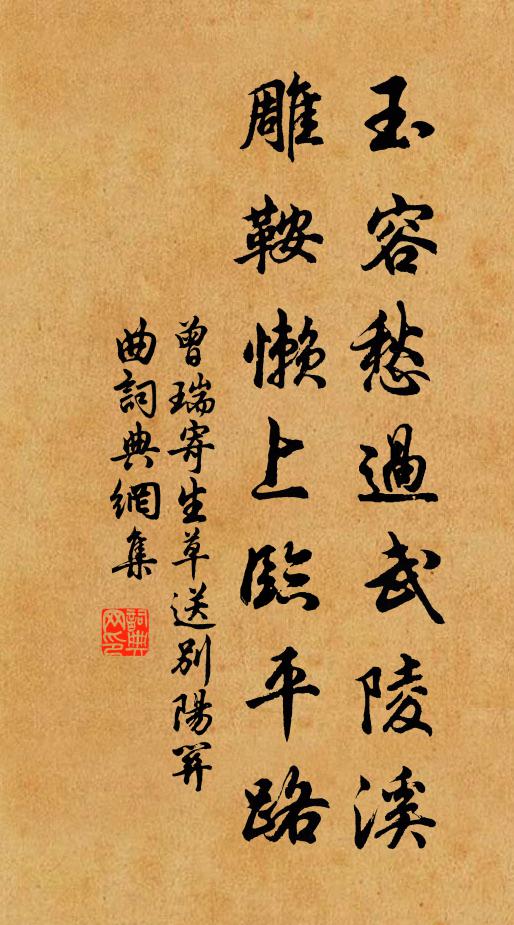 玉容愁過武陵溪
雕鞍懶上臨平路
曾瑞寄生草送別陽関
曲詞典網集
詞典
网印